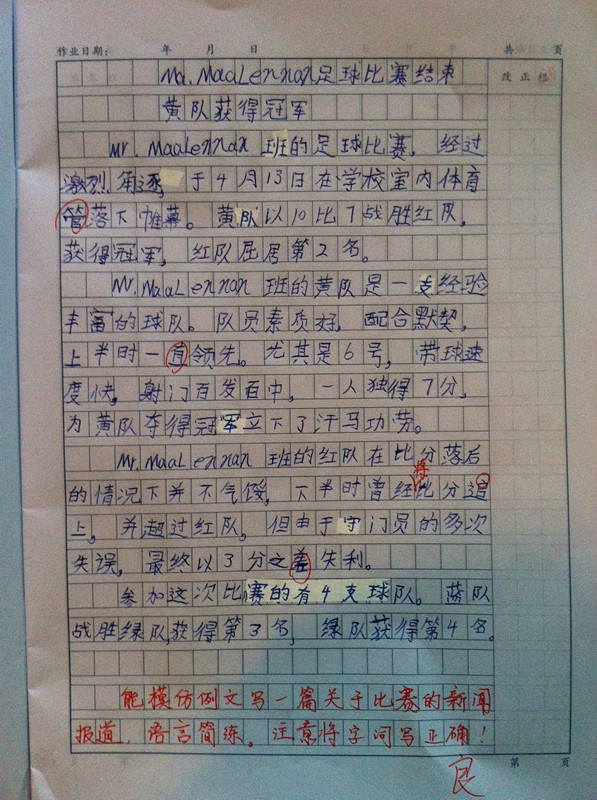 作业日期： 年 月 日 共 页
Ma. MaaLennan足球比赛结束 改正栏
黄队获得冠军
Mr. MaaLennan 班的足球比赛，经过
激烈角逐，于4月13日在学校室内体育
管落下帷幕。黄队以10比7战胜红队，
获得冠军，红队屈居第2名。
Mr. MaaLennan 班的黄队是一支经验
丰富的球队。队员素质好，配合默契，
上半时一直领先。尤其是6号，带球速
度快，射门百发百中，一人独得7分，
为黄队夺得冠军立下了汗马功劳。
Mr. MaaLennan 班的红队在比分落后
将
的情况下并不气馁，下半时曾经比分追
上，并超过红队，但由于守门员的多次
失误，最终以3分之差失利。
参加这次比赛的有4支球队。蓝队
战胜绿队，获得第3名，绿队获得第4名。
能模仿例文写一篇关于比赛的新闻
报道，语言简练。注意将字词写正确！
良
第 页